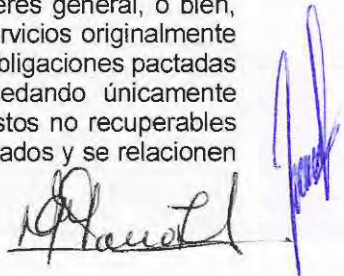 eres general, o bien,
rvicios originalmente
bligaciones pactadas
edando únicamente
stos no recuperables
ados y se relacionen